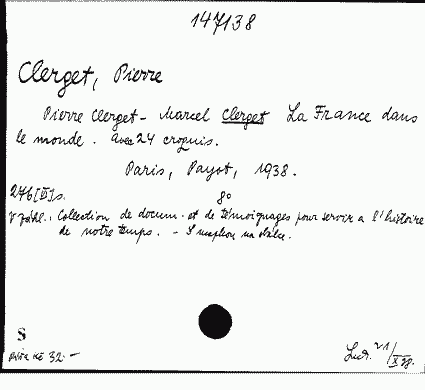 147138
Clerget, Pierre
Pierre Clerget - Marcel Clerget La France dans
le monde. Avec 24 croquis.
Paris, Payot, 1938.
276 [III] s. 8°
V záhl.: Collection de docum. et de témoignages pour servir a l'histoire
de notre temps. - S
S
32.-
21/X 38.